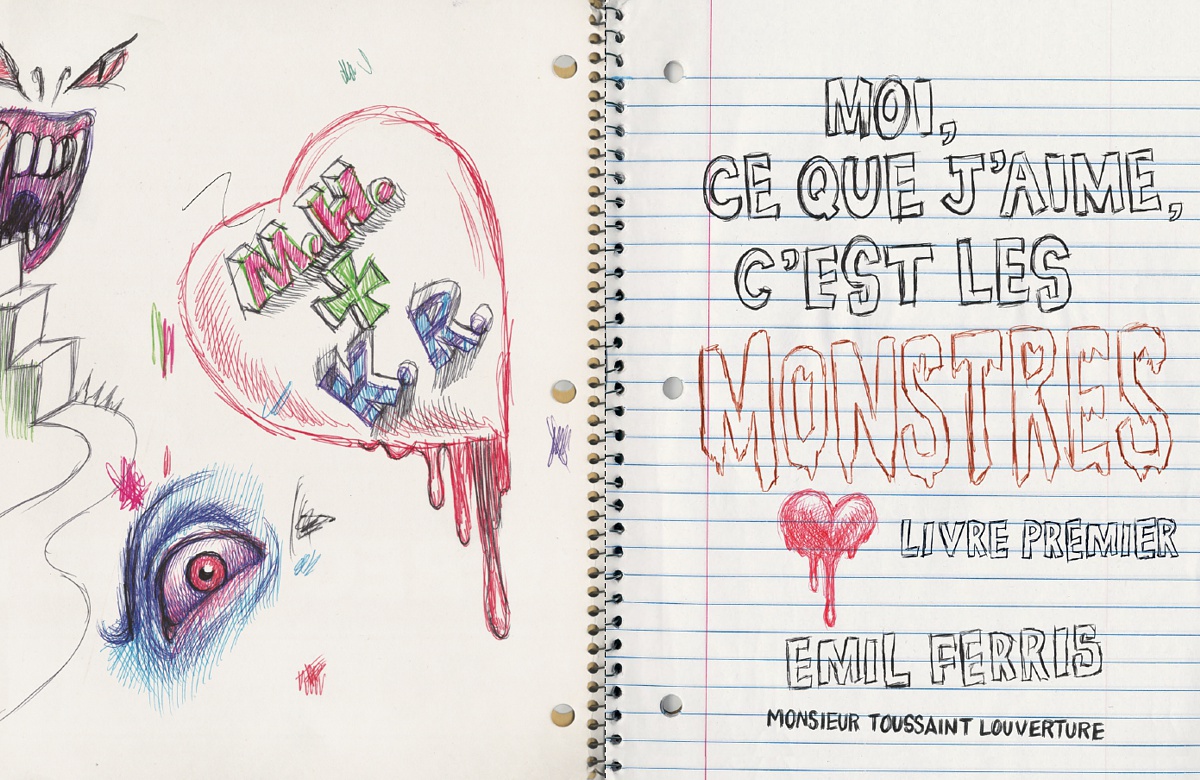 M.H.
+
K.R.
MOI,
CE QUE J'AIME,
C'EST LES
MONSTRES
LIVRE PREMIER
EMIL FERRIS
MONSIEUR TOUSSAINT LOUVERTURE